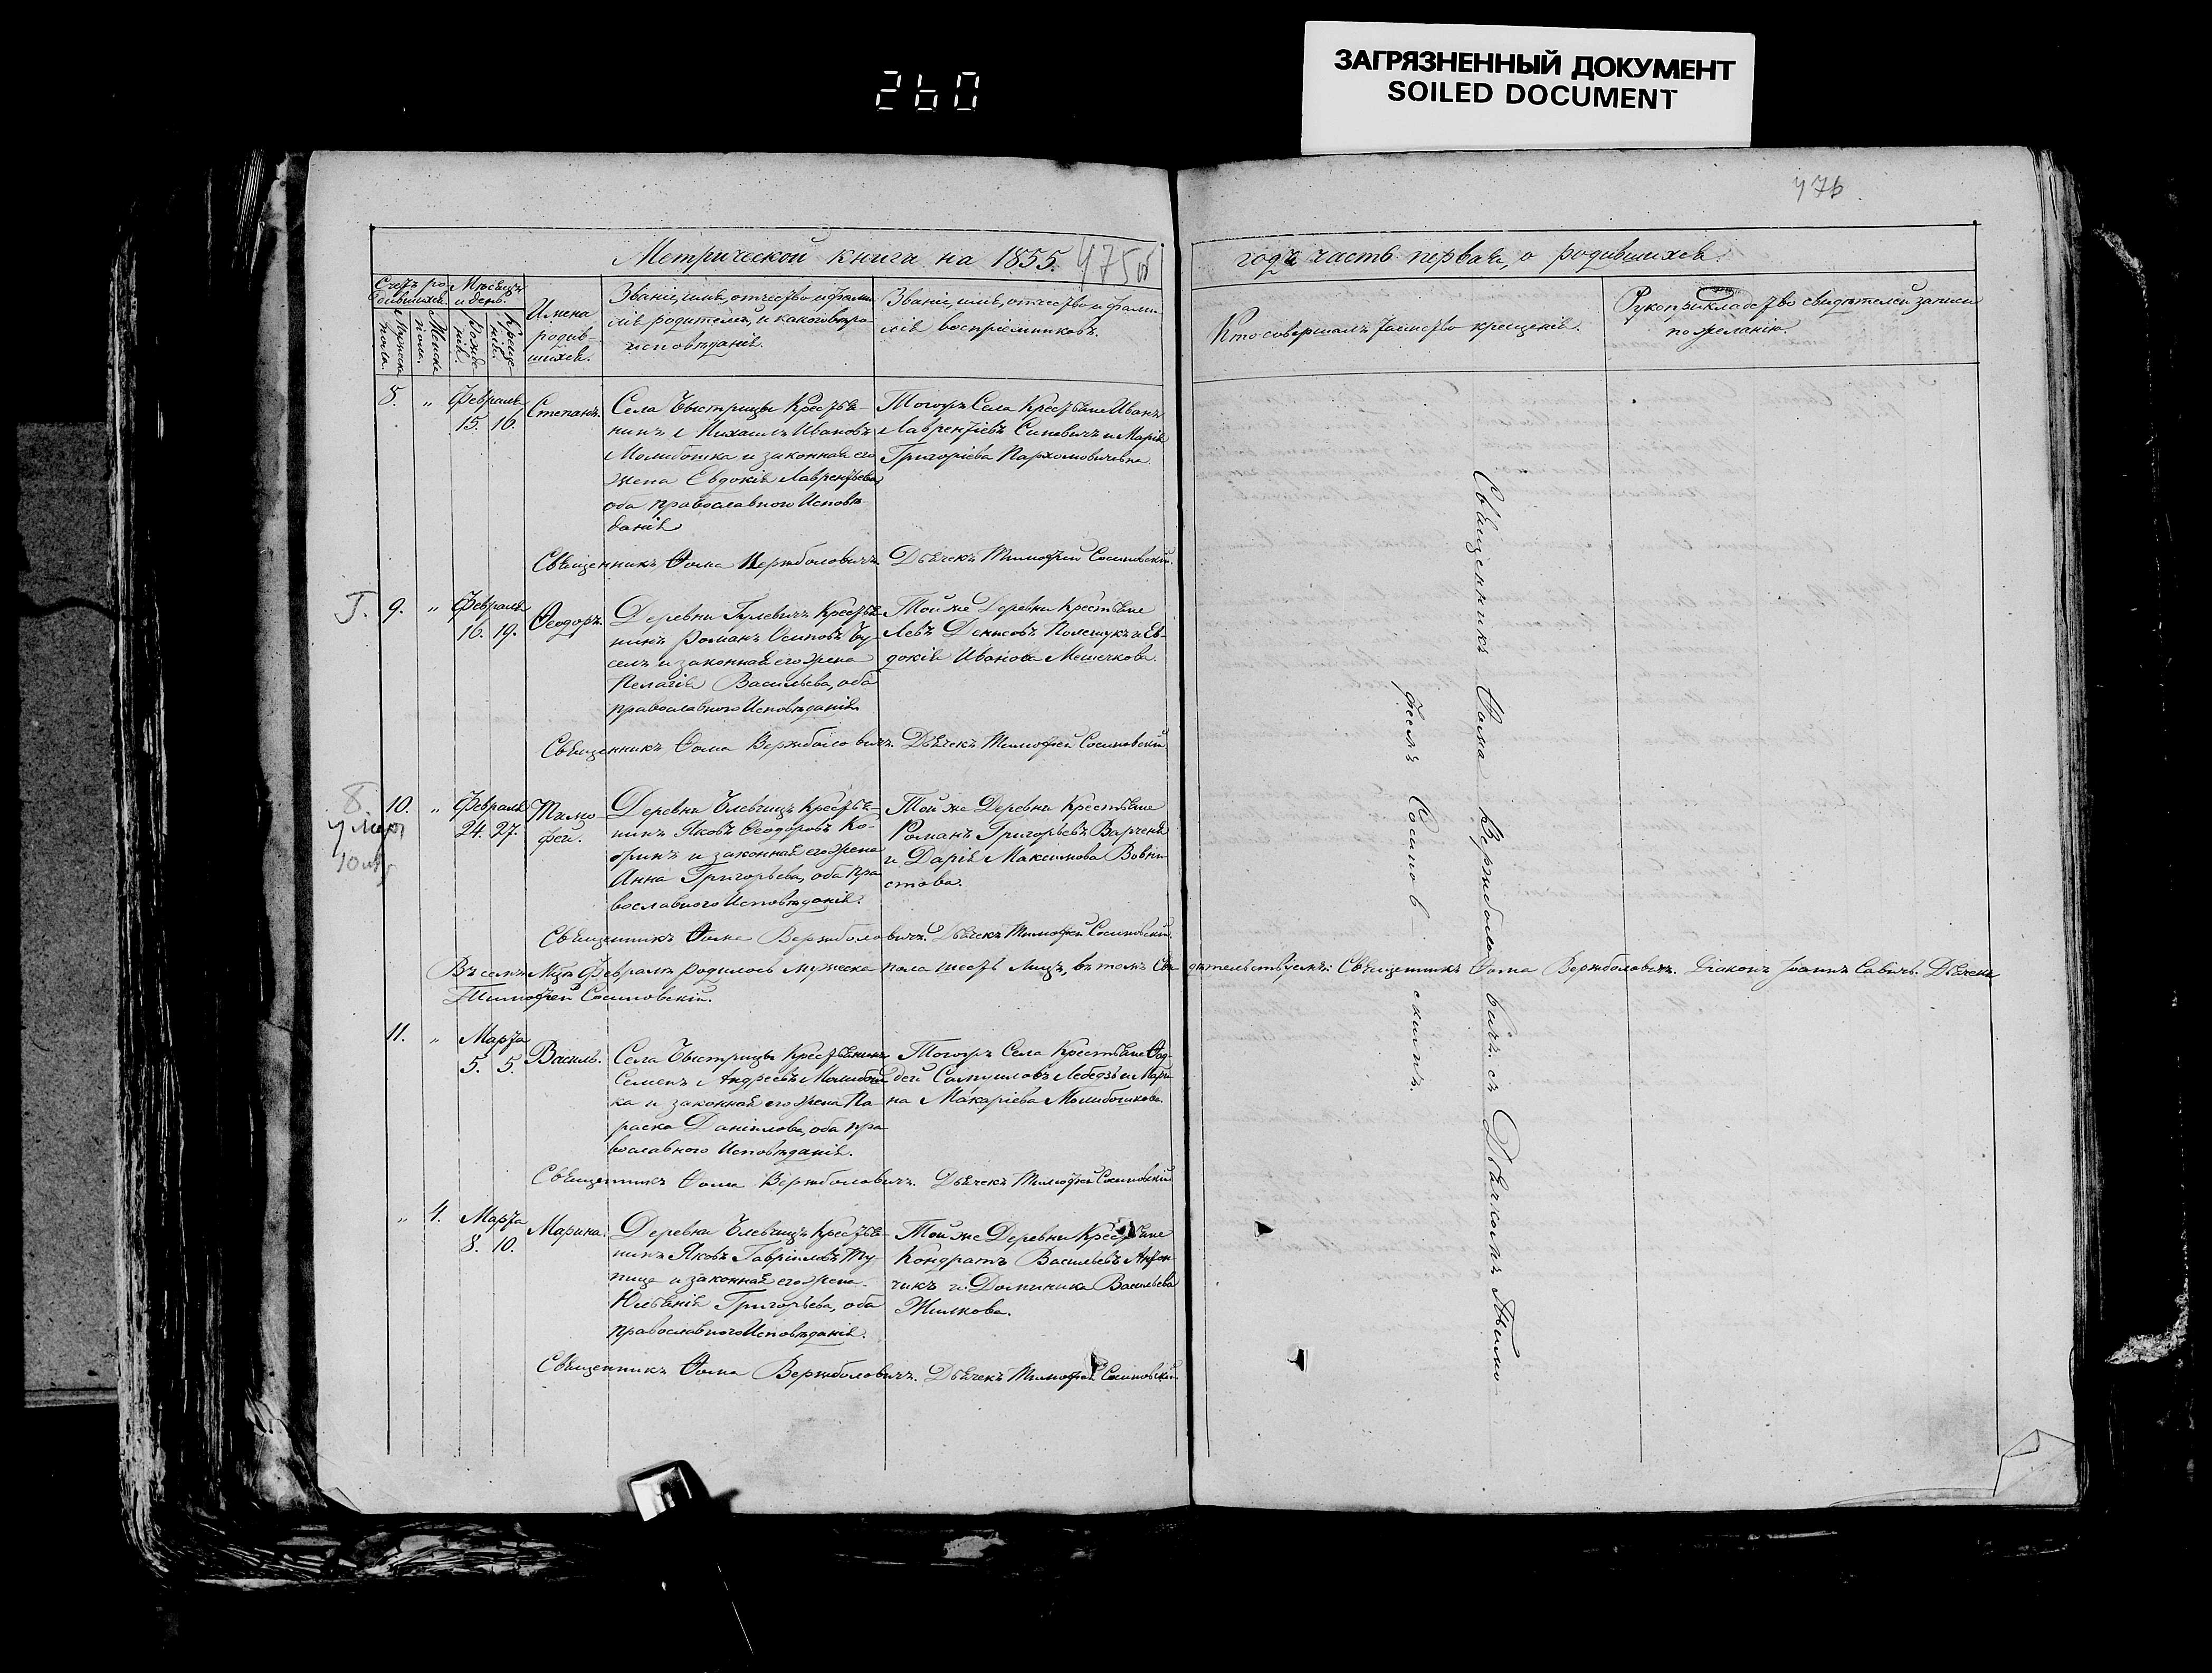 ЗАГРЯЗНЕННЫЙ ДОКУМЕНТ
SOILED DOCUMENT
260
476
Метрической книга на 1855. 475 об
годъ часть первая, о родившихся.
Счетъ ро-
дившихся.
Мужеска пола.
Женска пола.
Мѣсяцъ
и день.
Рожде-
нія.
Креще-
нія.
Имена
родив-
шихся.
Званіе, имя, отчество и фами-
лія родителей, и какого вѣро-
исповѣданія.
Званіе, имя, отчество и фами-
лія воспріемниковъ.
Кто совершалъ таинство крещенія.
Рукоприкладство свидѣтелей записи
по желанію.
8. „ Февраля
15. 16.
Степанъ.
Села Быстрицы Крестья-
нинъ Михаилъ Ивановъ
Молибошка и законная его
жена Евдокія Лаврентьева
оба православного Исповѣ-
данія
Тогожъ Села Крестьяне Иванъ
Лаврентіевъ Синовичъ и Марія
Григоріева Пархомовичевна.
Священникъ Ѳома Вержболовичъ. Дьячекъ Тимофей Сосиновскій.
9. „ Февраля
16. 19.
Ѳеодоръ.
Деревни Гулевичъ Крестья-
нинъ Романъ Осиповъ Бу-
селъ и законная его жена
Пелагія Васильева, оба
православного Исповѣданія.
Той же Деревни Крестьяне
Левъ Денисовъ Полещукъ и Ев-
докія Иванова Мешечкова.
Священникъ Ѳома Вержболовичъ. Дьячекъ Тимофей Сосиновскій
10. „ Февраля
24. 27.
Тимо-
фей.
Деревни Блевчицъ Крестья-
нинъ Яковъ Ѳеодоровъ Ко-
бринъ и законная его жена
Анна Григорьева, оба пра-
вославного Исповѣданія.
Той же Деревни Крестьяне
Романъ Григорьевъ Варченя
и Дарія Максимова Вовни-
стова.
Священникъ Ѳома Вержболовичъ. Дьячекъ Тимофей Сосиновскій.
Въ семъ Мцѣ Февралѣ родилось мужеска пола шесть лицъ, въ томъ сви-дѣтельствуемъ: Священникъ Ѳома Вержболовичъ. Діаконъ Іоаннъ Савичъ. Дьячекъ
Тимофей Сосиновскій.
11. „ Марта
5. 5.
Василь.
Села Быстрицы Крестьянинъ
Семенъ Андреевъ Молибош-
ка и законная его жена Па-
раска Даніилова, оба пра-
вославного Исповѣданія.
Тогожъ Села Крестьяне Ѳад-
дей Самуиловъ Лебедзь и Мари-
на Макаріева Молибошкова.
Священникъ Ѳома Вержболовичъ. Дьячекъ Тимофей Сосиновскій
„ 4. Марта
8. 10.
Марина.
Деревни Блевчицъ Крестья-
нинъ Яковъ Гавріиловъ Ту-
пица и законная его жена
Юльянія Григорьева, оба
православного Исповѣданія.
Той же Деревни Крестьяне
Кондратъ Васильевъ Антон-
чикъ и Доминика Васильева
Жилкова.
Священникъ Ѳома Вержболовичъ. Дьячекъ Тимофей Сосиновскій
Священникъ Ѳома Вержболовичъ съ Дьячкомъ Тимо-
феемъ Сосиновскимъ.